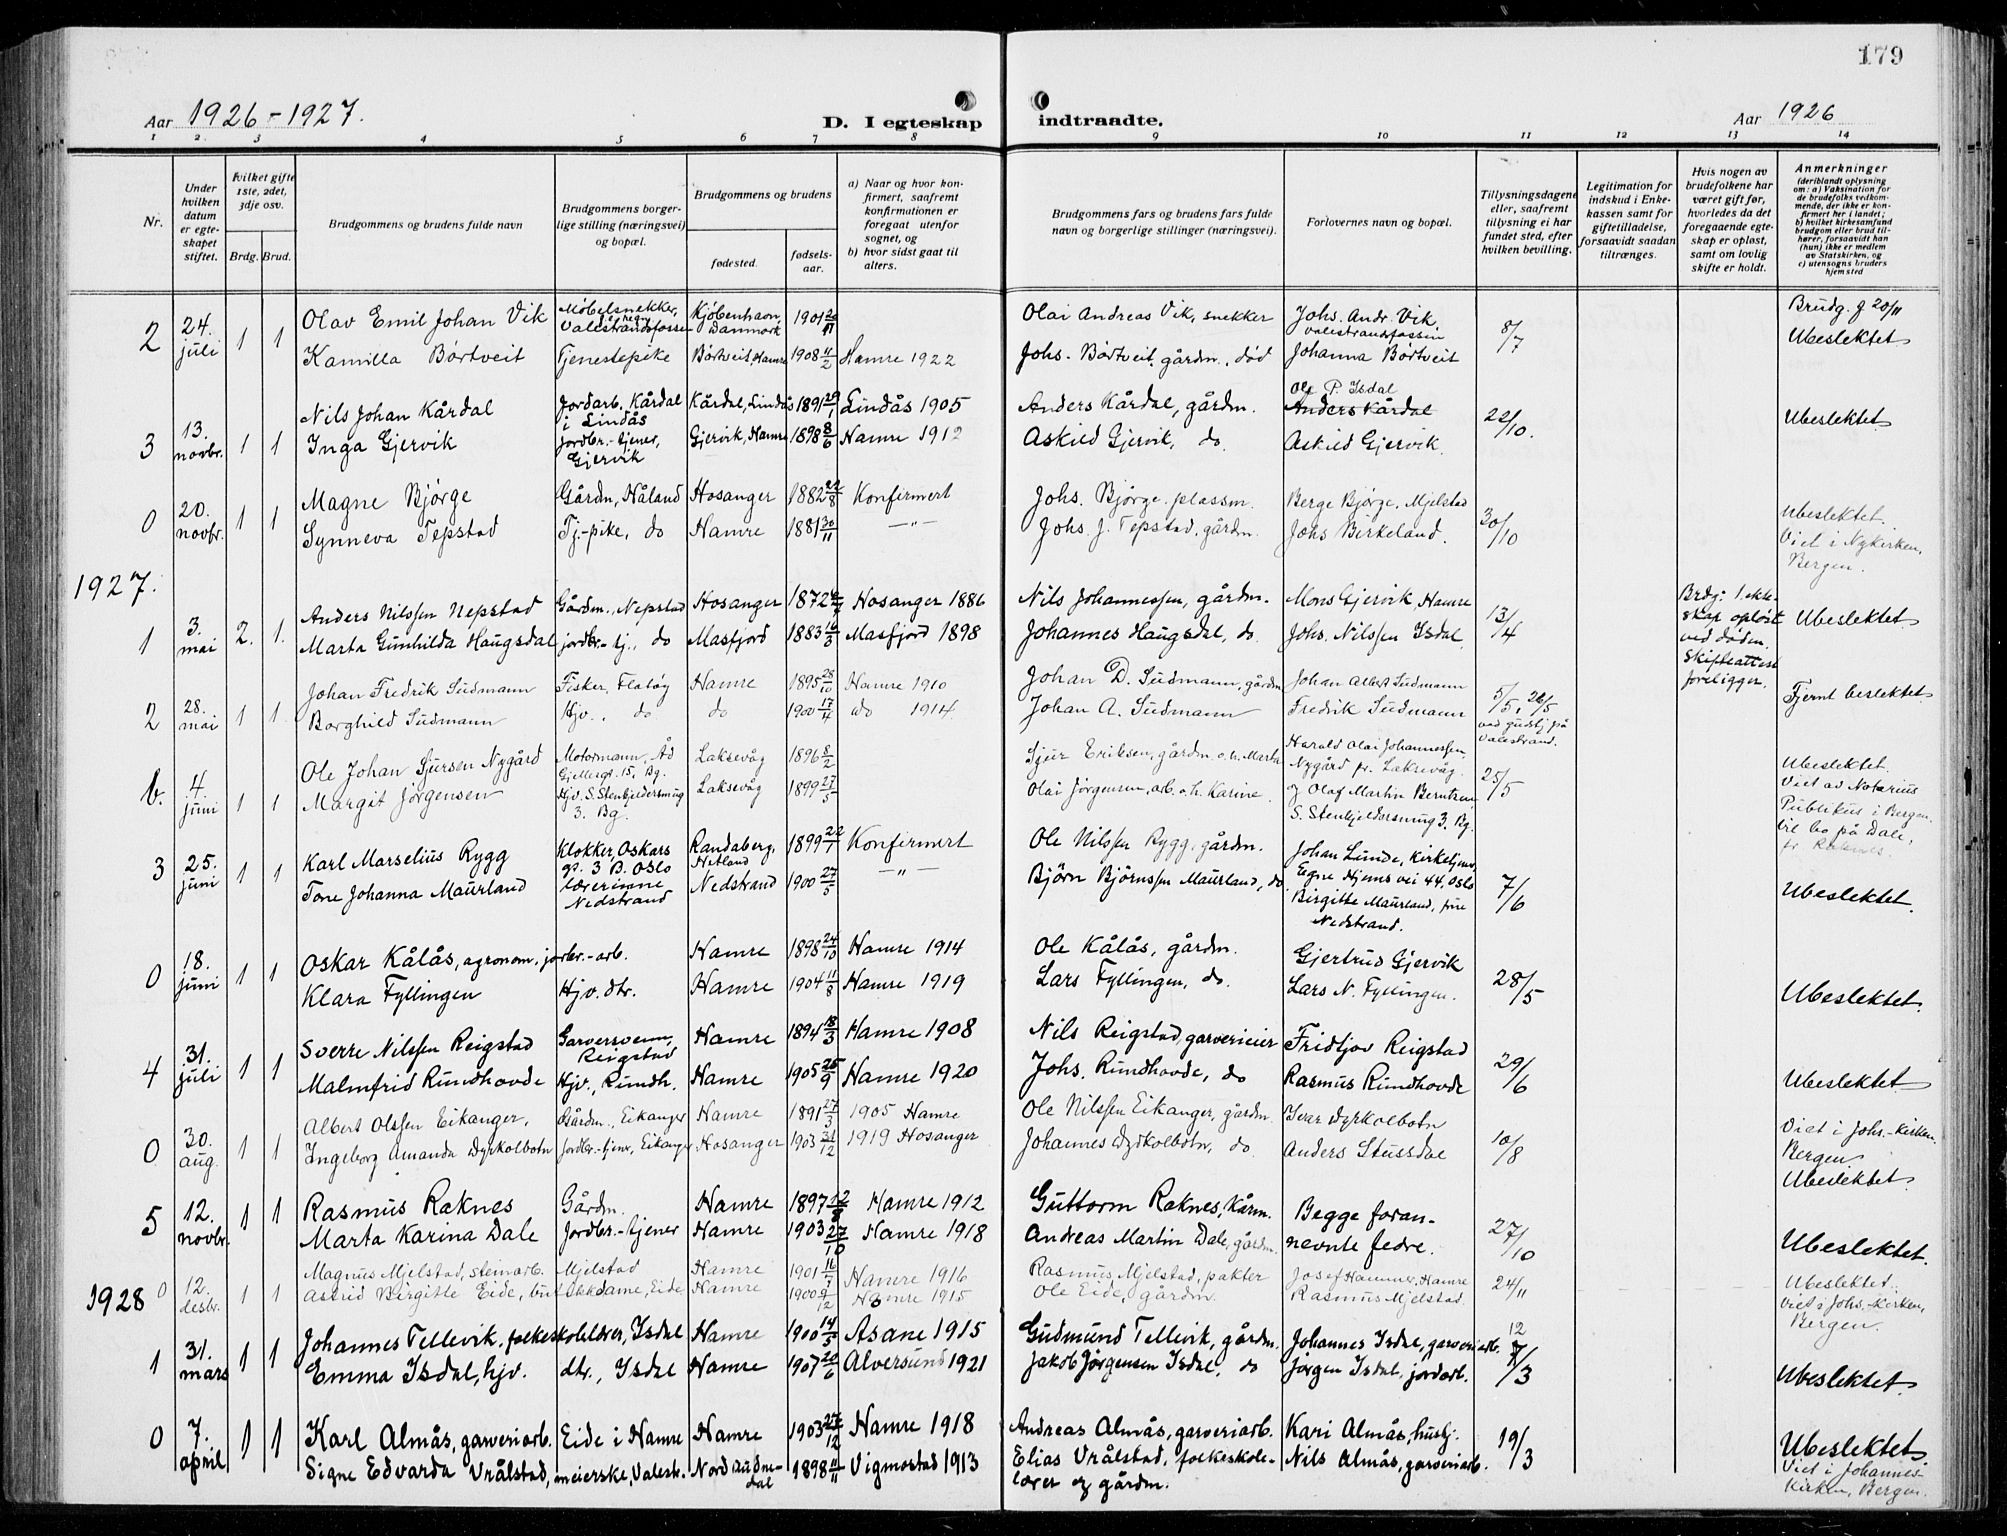 179
Aar 1926-1927.
D. I egteskap indtraadte.
Aar 1926
1 2. 3 4 5 6 7 8 9 10 11 12 13 14
Nr.
Under hvilken datum er egteskapet stiftet.
Hvilket gifte 1ste, 2det, 3dje osv.
Brdg. Brud.
Brudgommens og brudens fulde navn
Brudgommens borgerlige stilling (næringsvei) og bopæl.
Brudgommens og brudens
fødested.
fødselsaar.
a) Naar og hvor konfirmert, saafremt konfirmationen er foregaat utenfor sognet, og
b) hvor sidst gaat til alters.
Brudgommens fars og brudens fars fulde navn og borgerlige stillinger (næringsvei).
Forlovernes navn og bopæl.
Tillysningsdagene eller, saafremt tillysning ei har fundet sted, efter hvilken bevilling.
Legitimation for indskud i Enkekassen samt for giftetilladelse, forsaavidt saadan tiltrænges.
Hvis nogen av brudefolkene har været gift før, hvorledes da det foregaaende egteskap er opløst, samt om lovlig skifte er holdt.
Anmerkninger (deriblandt oplysning om: a) Vaksination for de brudefolks vedkommende, der ikke er konfirmert her i landet; b) hvilket kirkesamfund brudgom eller brud tilhører, forsaavidt han (hun) ikke er medlem av Statskirken, og c) utensogns bruders hjemsted
2 24. juli 1 1 Olav Emil Johan Vik Møbelsnekker, Valestrandsfossen Kjøbenhavn, Danmark 1901 20/11 Olai Andreas Vik, snekker Johs. Andr. Vik, Valestrandsfossen 8/7 Brudg. f 20/11
Kamilla Børtveit Tjenestepike Børtveit, Hamre 1908 11/2 Hamre 1922 Johs. Børtveit, gårdm., død Johanna Børtveit Ubeslektet
3 13. novbr. 1 1 Nils Johan Kårdal Jordarb. Kårdal i Lindås Kårdal, Lindås 1891 29/1 Lindås 1905 Anders Kårdal, gårdm. Ole P. Isdal Anders Kårdal 22/10. Ubeslektet
Inga Gjervik jordbr.-tjener, Gjervik Gjervik, Hamre 1898 8/6 Hamre 1912 Askild Gjervik, do. Askild Gjervik.
0 20. novbr. 1 1 Magne Bjørge Gårdm, Håland Hosanger 1882 22/8 Konfirmert Johs. Bjørge, plassm. Berge Bjørge, Mjelstad 30/10 Ubeslektet.
Synneva Tepstad Tj.-pike, do Hamre 1881 30/11 —"— Johs. J. Tepstad, gårdm. Johs Birkeland. Viet i Nykirken, Bergen.
1927.
1 3. mai 2. 1. Anders Nilssen Nepstad Gårdm., Nepstad Hosanger 1872 Hosanger 1886 Nils Johannessen, gårdm. Mons Gjervik, Hamre 13/4 Brdg: 1. ekteskap opløst ved døden. Skifteattest foreligger. Ubeslektet
Marta Gunhilda Haugsdal jordbr.-tj., do Masfjord 1883 16/3 Masfjord 1898 Johannes Haugsdal, do. Johs. Nilssen Isdal.
2 28. mai 1 1 Johan Fredrik Sudmann Fisker, Flatøy Hamre 1895 28/10 Hamre 1910 Johan D. Sudmann, gårdm Johan Albert Sudmann 5/5, 26/5 ved gudstj på Valestrand. Fjernt beslektet
Borghild Sudmann Hjv., do do 1900 17/4 do 1914 Johan A. Sudmann Fredrik Sudmann
b. 4. juni 1 1 Ole Johan Sjursen Nygård Motormann, Ad Gjellergt. 15, Bg. Laksevåg 1896 8/2 Sjur Eriksen, gårdm. o.h. Marta Harald Olai Johannessen, Nygård pr. Laksevåg. 25/5 Ubeslektet.
Margit Jørgensen Hjv. S. Stenkjeldersmug 3. Bg. Laksevåg 1899 27/5 Olai Jørgensen, arb. o.h. Karine. og Olaf Martin Berntsen S. Stenkjeldersmug 3. Bg. Viet av Notarius Publikus i Bergen. Vil bo på Dale, pr. Raknes
3 25. juni 1 1 Karl Marselius Rygg Klokker, Oskars gt. 3 B. Oslo Randaberg, Hetland 1899 22/1 Konfirmert Ole Nilssen Rygg, gårdm. Johan Lunde, kirketjener, Egne Hjems vei 44, Oslo 7/6 Ubeslektet.
Tone Johanna Maurland lærerinne Nedstrand Nedstrand 1900 27/5 —"— Bjørn Bjørnssen Maurland, do Birgitte Maurland, frue Nedstrand.
0 18. juni 1 1 Oskar Kålås, agronom, jordbr.-arb. Hamre 1898 24/10 Hamre 1914 Ole Kålås, gårdm. Gjertrud Gjervik 28/5 Ubeslektet.
Klara Fyllingen Hjv. dtr. Hamre 1904 11/8 Hamre 1919 Lars Fyllingen, do. Lars N. Fyllingen.
4 31. juli 1 1 Sverre Nilssen Reigstad Garversvenn, Reigstad Hamre 1894 18/3 Hamre 1908 Nils Reigstad, garverieier Fridtjov Reigstad 29/6 Ubeslektet
Malmfrid Rundhovde Hjv., Rundh. Hamre 1905 25/9 Hamre 1920 Johs. Rundhovde, do Rasmus Rundhovde
0 30. aug. 1 1 Albert Olssen Eikanger, Gårdm., Eikanger Hamre 1891 27/3 1905 Hamre Ole Nilssen Eikanger, gårdm. Ivar Dyrkolbotn 10/8 Viet i Johs.-kirken. Bergen
Ingeborg Amanda Dyrkolbotn jordbr.-tjener, Eikanger Hosanger 1903 31/12 1919 Hosanger Johannes Dyrkolbotn, do. Anders Stussdal Ubeslektet.
5 12. novbr. 1 1 Rasmus Raknes Gårdm. Hamre 1897 12/8 Hamre 1912 Guttorm Raknes, Kårm. Begge forannevnte fedre. 27/10 Ubeslektet.
Marta Karina Dale Jordbr.-tjener Hamre 1903 27/10 Hamre 1918 Andreas Martin Dale, gårdm.
0 12. desbr. 1 1 Magnus Mjelstad, steinarb. Mjelstad Hamre 1901 Hamre 1916 Rasmus Mjelstad, pakter Josef Hammer, Hamre 24/11 Ubeslektet.
Astrid Birgitte Eide, butikkdame, Eide Hamre 1900 9/12 Hamre 1915 Ole Eide, gårdm. Rasmus Mjelstad. Viet i Johs.-kirken, Bergen.
1928
1 31. mars 1 1 Johannes Tellevik, folkeskolelærer, Isdal Hamre 1900 14/5 Åsane 1915 Gudmund Tellevik, gårdm. Johannes Isdal, garveriarb. 12/3 Ubeslektet.
Emma Isdal, hjv. dtr., Isdal Hamre 1907 20/6 Alversund 1921 Jakob Jørgensen Isdal, do Jørgen Isdal, jordarb.
0 7. april 1 1 Karl Almås, garveriarb. Eide i Hamre Hamre 1903 27/12 Hamre 1918 Andreas Almås, garveriarb. Kari Almås, hustj. 19/3 Ubeslektet
Signe Edvarda Vrålstad, meierske, Valestr. Nord audnedal 1898 11/11 Vigmostad 1913 Elias Vrålstad, folkeskolelærer og gårdm. Nils Almås, garveriarb. Viet i Johannes-Kirken, Bergen.